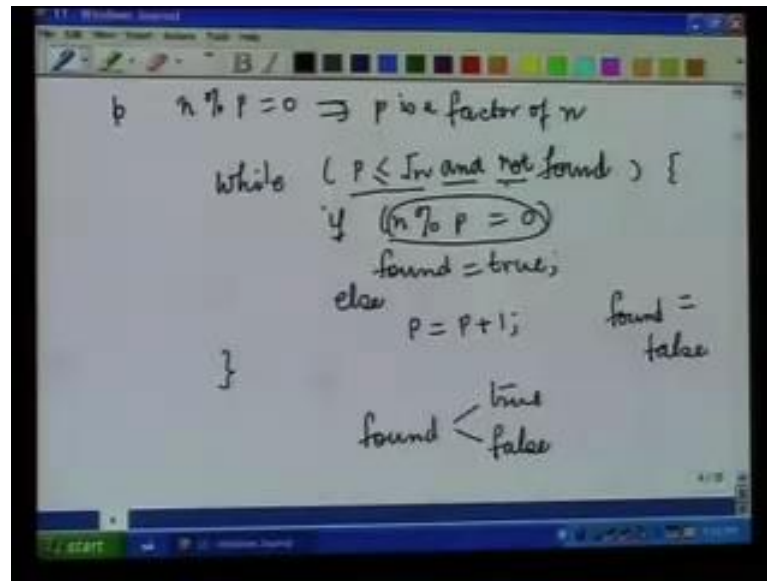 11 - Windows Journal
File Edit View Insert Actions Tools Help
B I
p n % p = 0 ⇒ p is a factor of n
while ( p ≤ √n and not found ) {
if (n % p = 0)
found = true;
else
p = p + 1; found =
false
}
found < true
false
start